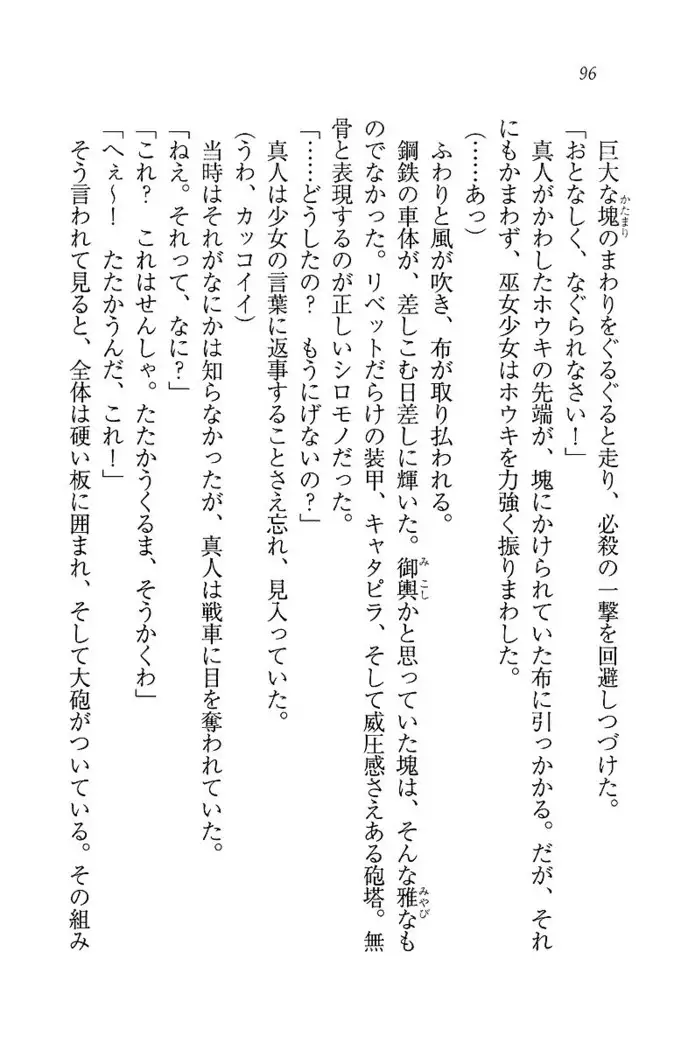 96
巨大な塊のまわりをぐるぐると走り、必殺の一撃を回避しつづけた。
「おとなしく、なぐられなさい！」
真人がかわしたホウキの先端が、塊にかけられていた布に引っかかる。だが、それ
にもかまわず、巫女少女はホウキを力強く振りまわした。
（……あっ）
ふわりと風が吹き、布が取り払われる。
鋼鉄の車体が、差しこむ日差しに輝いた。御輿かと思っていた塊は、そんな雅なも
のでなかった。リベットだらけの装甲、キャタピラ、そして威圧感さえある砲塔。無
骨と表現するのが正しいシロモノだった。
「……どうしたの？　もうにげないの？」
真人は少女の言葉に返事することさえ忘れ、見入っていた。
（うわ、カッコイイ）
当時はそれがなにかは知らなかったが、真人は戦車に目を奪われていた。
「ねえ。それって、なに？」
「これ？　これはせんしゃ。たたかうくるま、そうかくわ」
「へぇ～！　たたかうんだ、これ！」
そう言われて見ると、全体は硬い板に囲まれ、そして大砲がついている。その組み